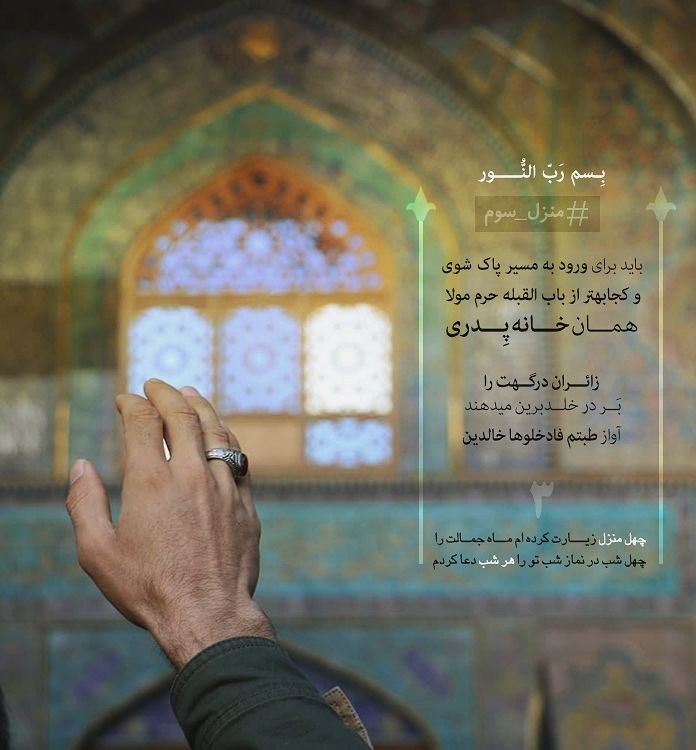 بِسم رَبّ النُّـــور
#منزل_سوم
باید برای ورود به مسیر پاک شوی
و کجابهتر از باب القبله حرم مولا
همـــان خـــانه پِـــدری
زائـــران درگـــهت را
بَـــر در خلـــدبرین میدهند
آواز طبتم فادخلوها خالدین
۳
چهل منزل زیـــارت کرده ام مـــاه جمـــالت را
چهل شب در نماز شب تو را هر شب دعا کردم